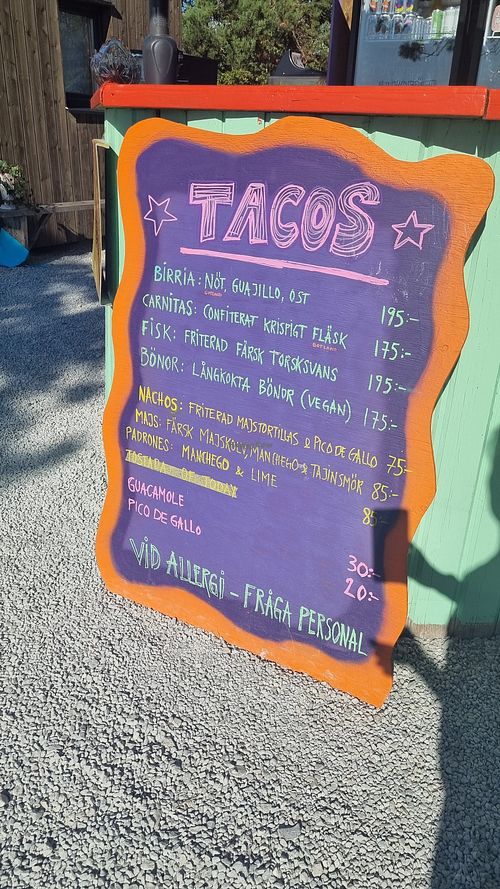 TACOS
BIRRIA: NÖT, GUAJILLO, OST 195:-
CARNITAS: CONFITERAT KRISPIGT FLÄSK 175:-
GOTLAND
FISK: FRITERAD FÄRSK TORSKSVANS 195:-
BÖNOR: LÅNGKOKTA BÖNOR (VEGAN) 175:-
NACHOS: FRITERAD MAJSTORTILLAS & PICO DE GALLO 75-
MAJS: FÄRSK MAJSKOLV, MANCHEGO & TAJINSMÖR 85:-
PADRONES: MANCHEGO & LIME 85:-
TOSTADA OF TODAY
GUACAMOLE 30:-
PICO DE GALLO 20:-
VID ALLERGI - FRÅGA PERSONAL